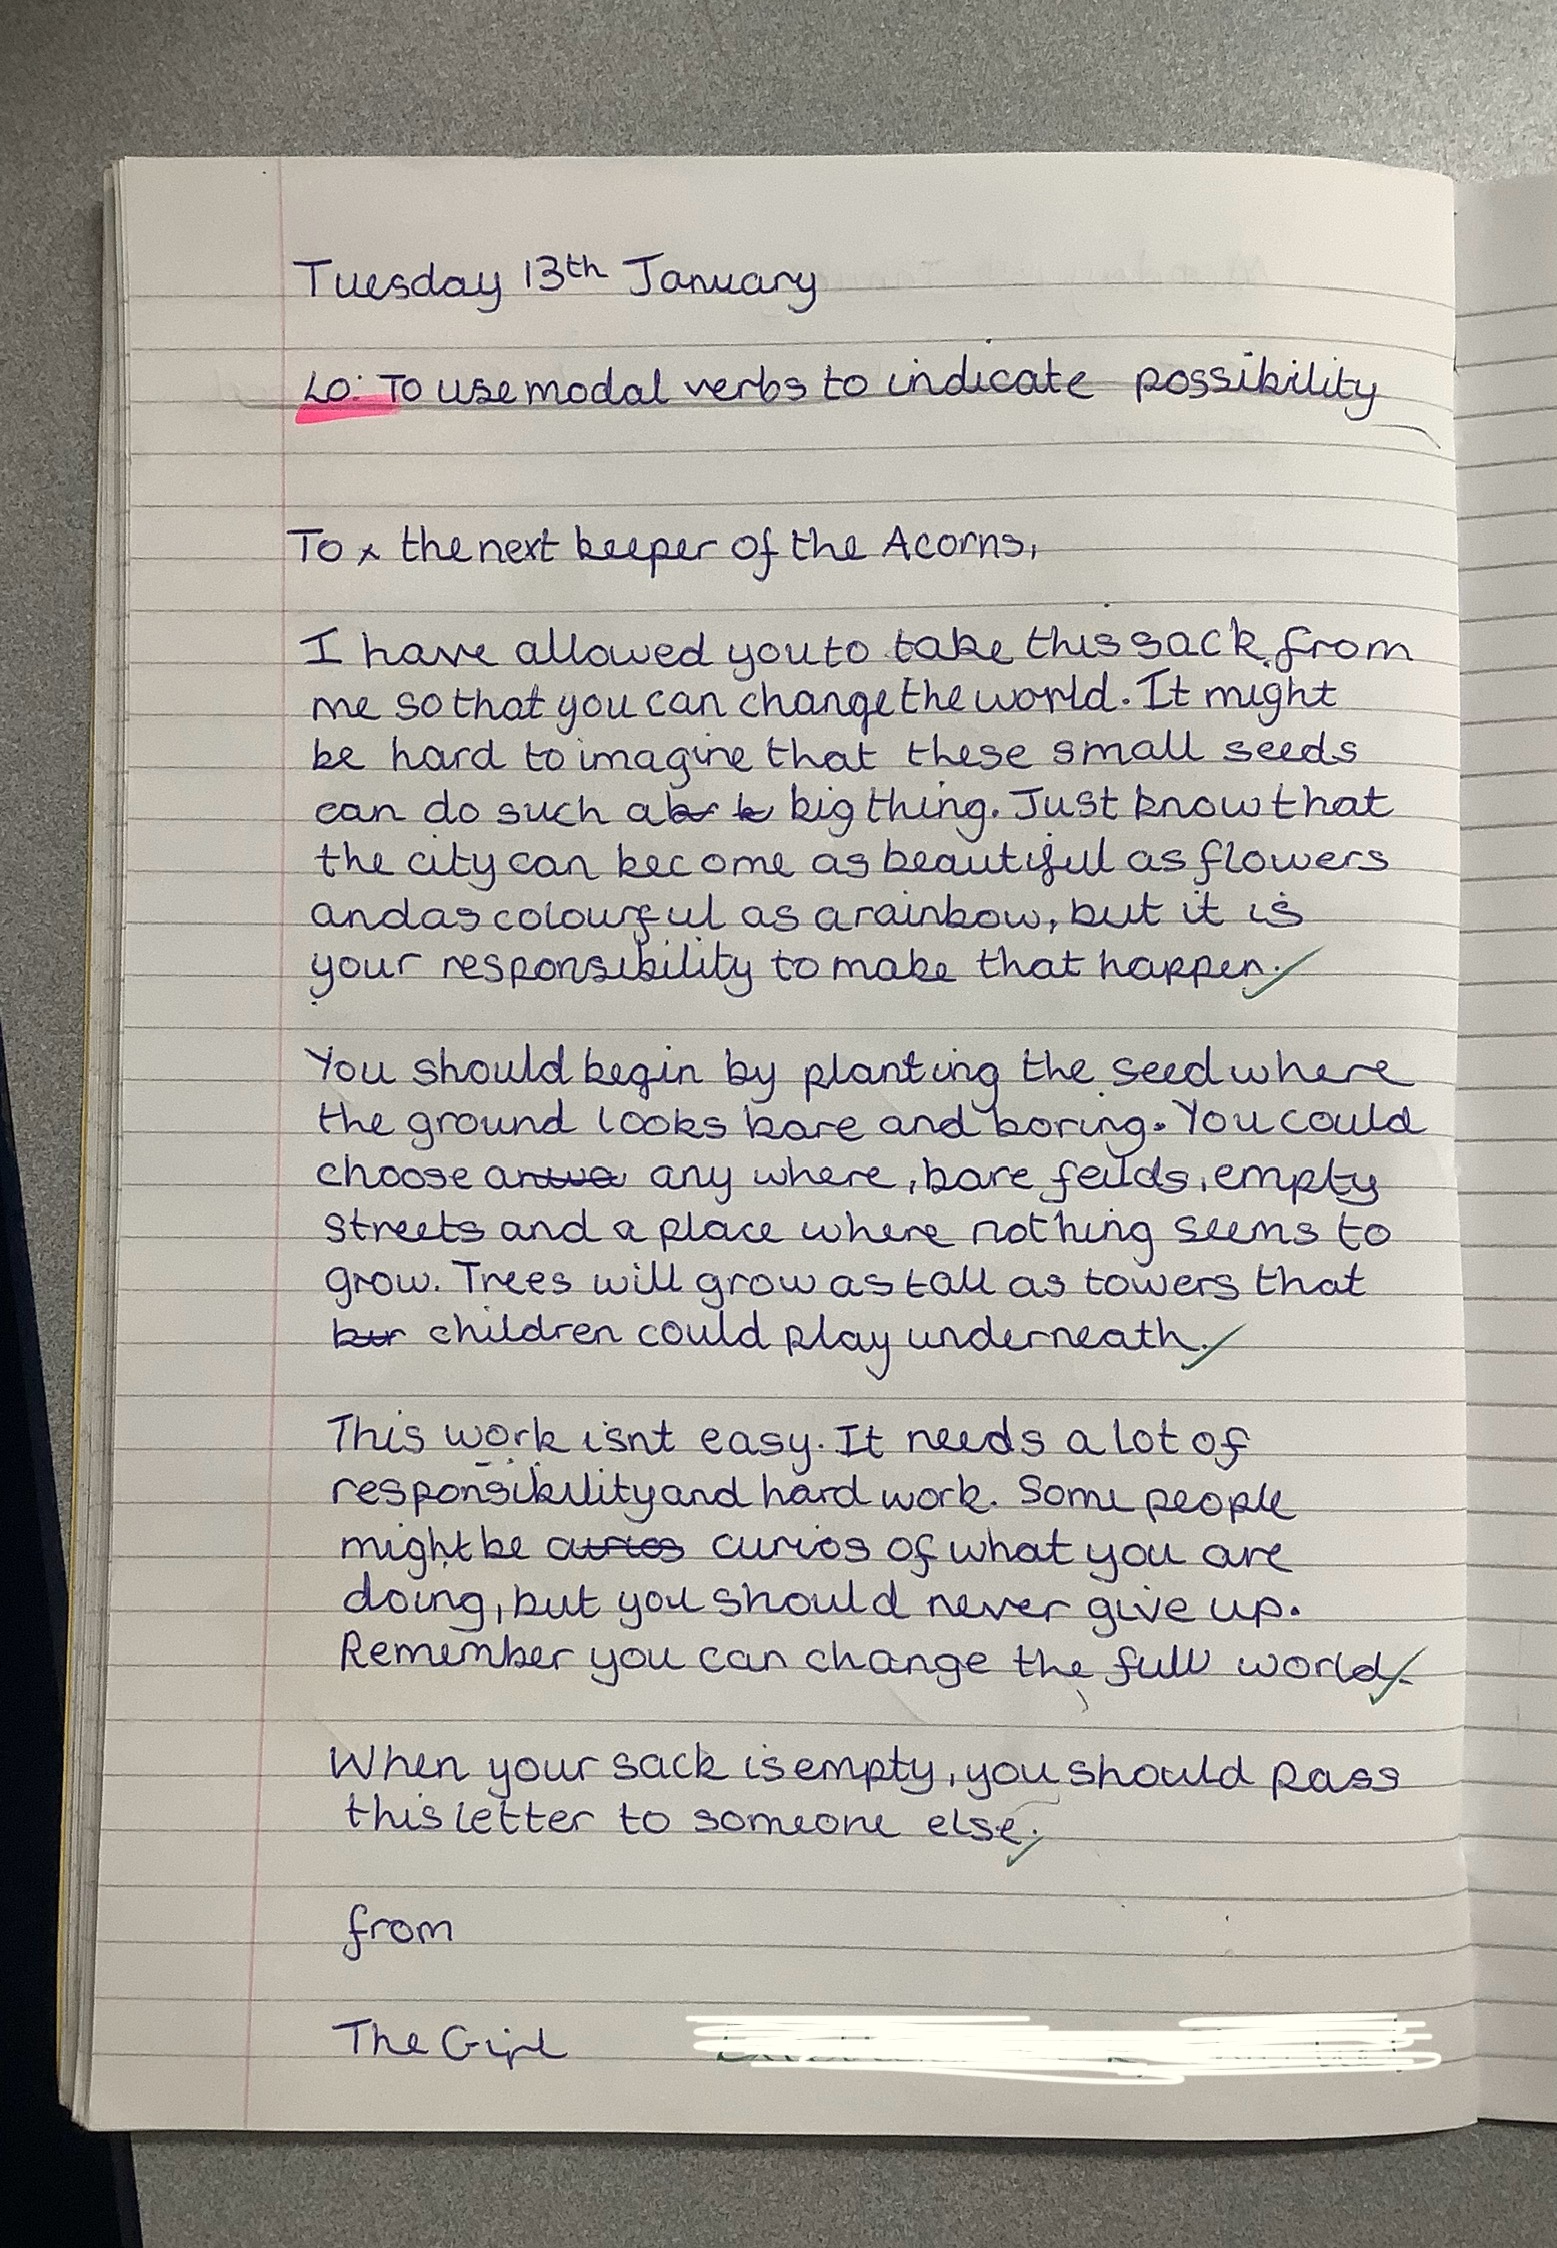 Tuesday 13th January
LO: To use modal verbs to indicate possibility
To the next keeper of the Acorns,
I have allowed you to take this sack from
me so that you can change the world. It might
be hard to imagine that these small seeds
can do such a big thing. Just know that
the city can become as beautiful as flowers
and as colourful as a rainbow, but it is
your responsibility to make that happen.
You should begin by planting the seed where
the ground looks bare and boring. You could
choose any where, bare feilds, empty
streets and a place where nothing seems to
grow. Trees will grow as tall as towers that
children could play underneath.
This work isnt easy. It needs a lot of
responsibility and hard work. Some people
might be curios of what you are
doing, but you should never give up.
Remember you can change the full world.
When your sack is empty, you should pass
this letter to someone else.
from
The Girl